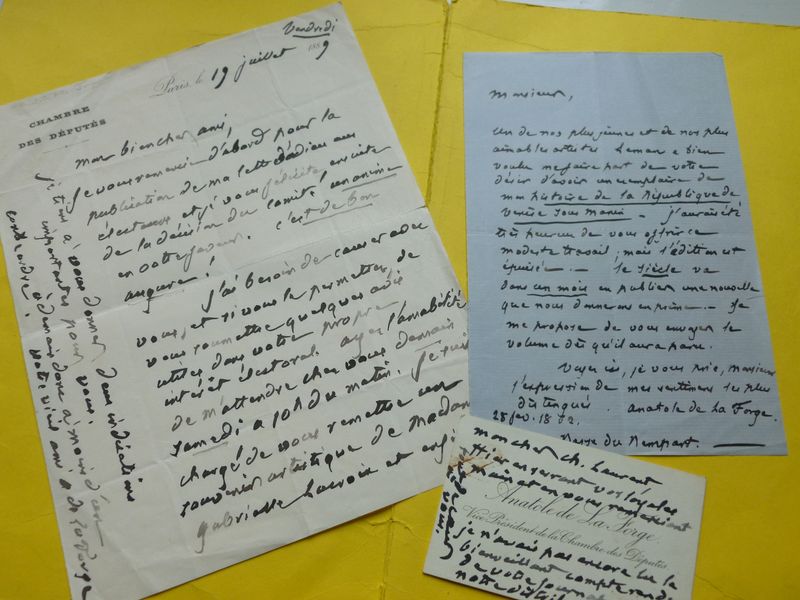 CHAMBRE
DES DÉPUTÉS
Vendredi
Paris, le 19 juillet 1889
mon bien cher ami,
Je vous remercie d'abord pour la
publication de ma lettre d'adieu aux
électeurs et je vous félicite ensuite
de la décision du comité unanime
en votre faveur. C'est de bon
augure!
J'ai besoin de causer avec
vous, et si vous le permettez, de
vous soumettre quelques avis
utiles dans votre propre
intérêt électoral. ayez l'amabilité
de m'attendre chez vous demain
samedi à 10h du matin. Je suis
chargé de vous remettre un
souvenir artistique de Madame
Gabrielle Lacroix et enfin
je tiens à vous donner deux indications
importantes pour vous.
à demain donc à moins d'avis
contraire. votre vieil ami A de La Forge
Monsieur,
un de nos plus jeunes et de nos plus
aimables artistes Leman a bien
voulu me faire part de votre
désir d'avoir un exemplaire de
mon histoire de la République de
Venise sous Manin — j'aurais été
très heureux de vous offrir ce
modeste travail; mais l'édition est
épuisée. — le Siècle va
dans un mois en publier une nouvelle
que nous donnerons en prime. — Je
me propose de vous envoyer le
volume dès qu'il aura paru.
Veuillez, je vous prie, monsieur
l'expression de mes sentiments les plus
distingués. Anatole de La Forge.
28 fev. 1872.
mon cher Ch. Laurent,
Hier en serrant vos loyales
mains et en vous remerciant
Anatole de La Forge
Vice Président de la Chambre des Députés
je n'avais pas encore lu le
bienveillant compte rendu
de votre journal